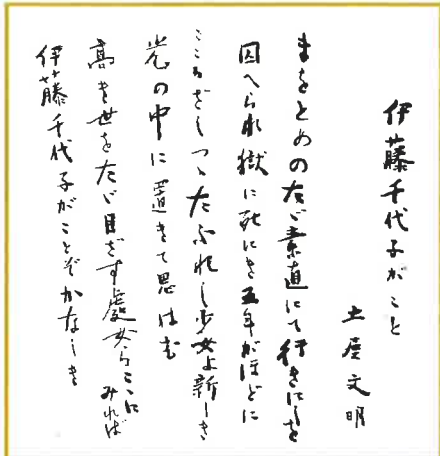 伊藤千代子がこと
土屋文明
まをとめのただ素直にて行きにしを
囚へられ獄に死にき五年がほどに
こころざしつゝたふれし少女よ新しき
光の中に置きて思はむ
高き世をただ目ざす處女らここにみれば
伊藤千代子がことぞかなしき